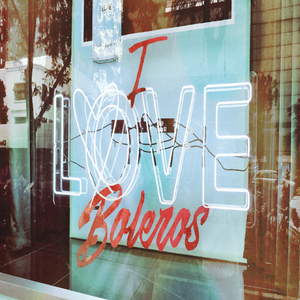 I
LOVE
Boleros